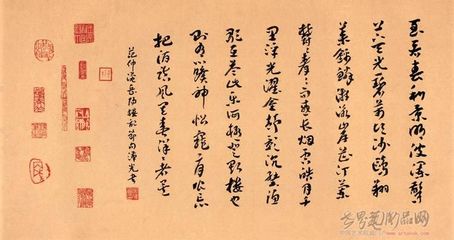 至若春和景明波瀾不驚
上下天光一碧萬頃沙鷗翔
集錦鱗游泳岸芷汀蘭
鬱鬱青青而或長煙一空皓月千
里浮光躍金靜影沉璧漁
歌互答此樂何極登斯樓也
則有心曠神怡寵辱偕忘
把酒臨風其喜洋洋者矣
范仲淹岳陽樓記節句沛光書
世界艺术品网